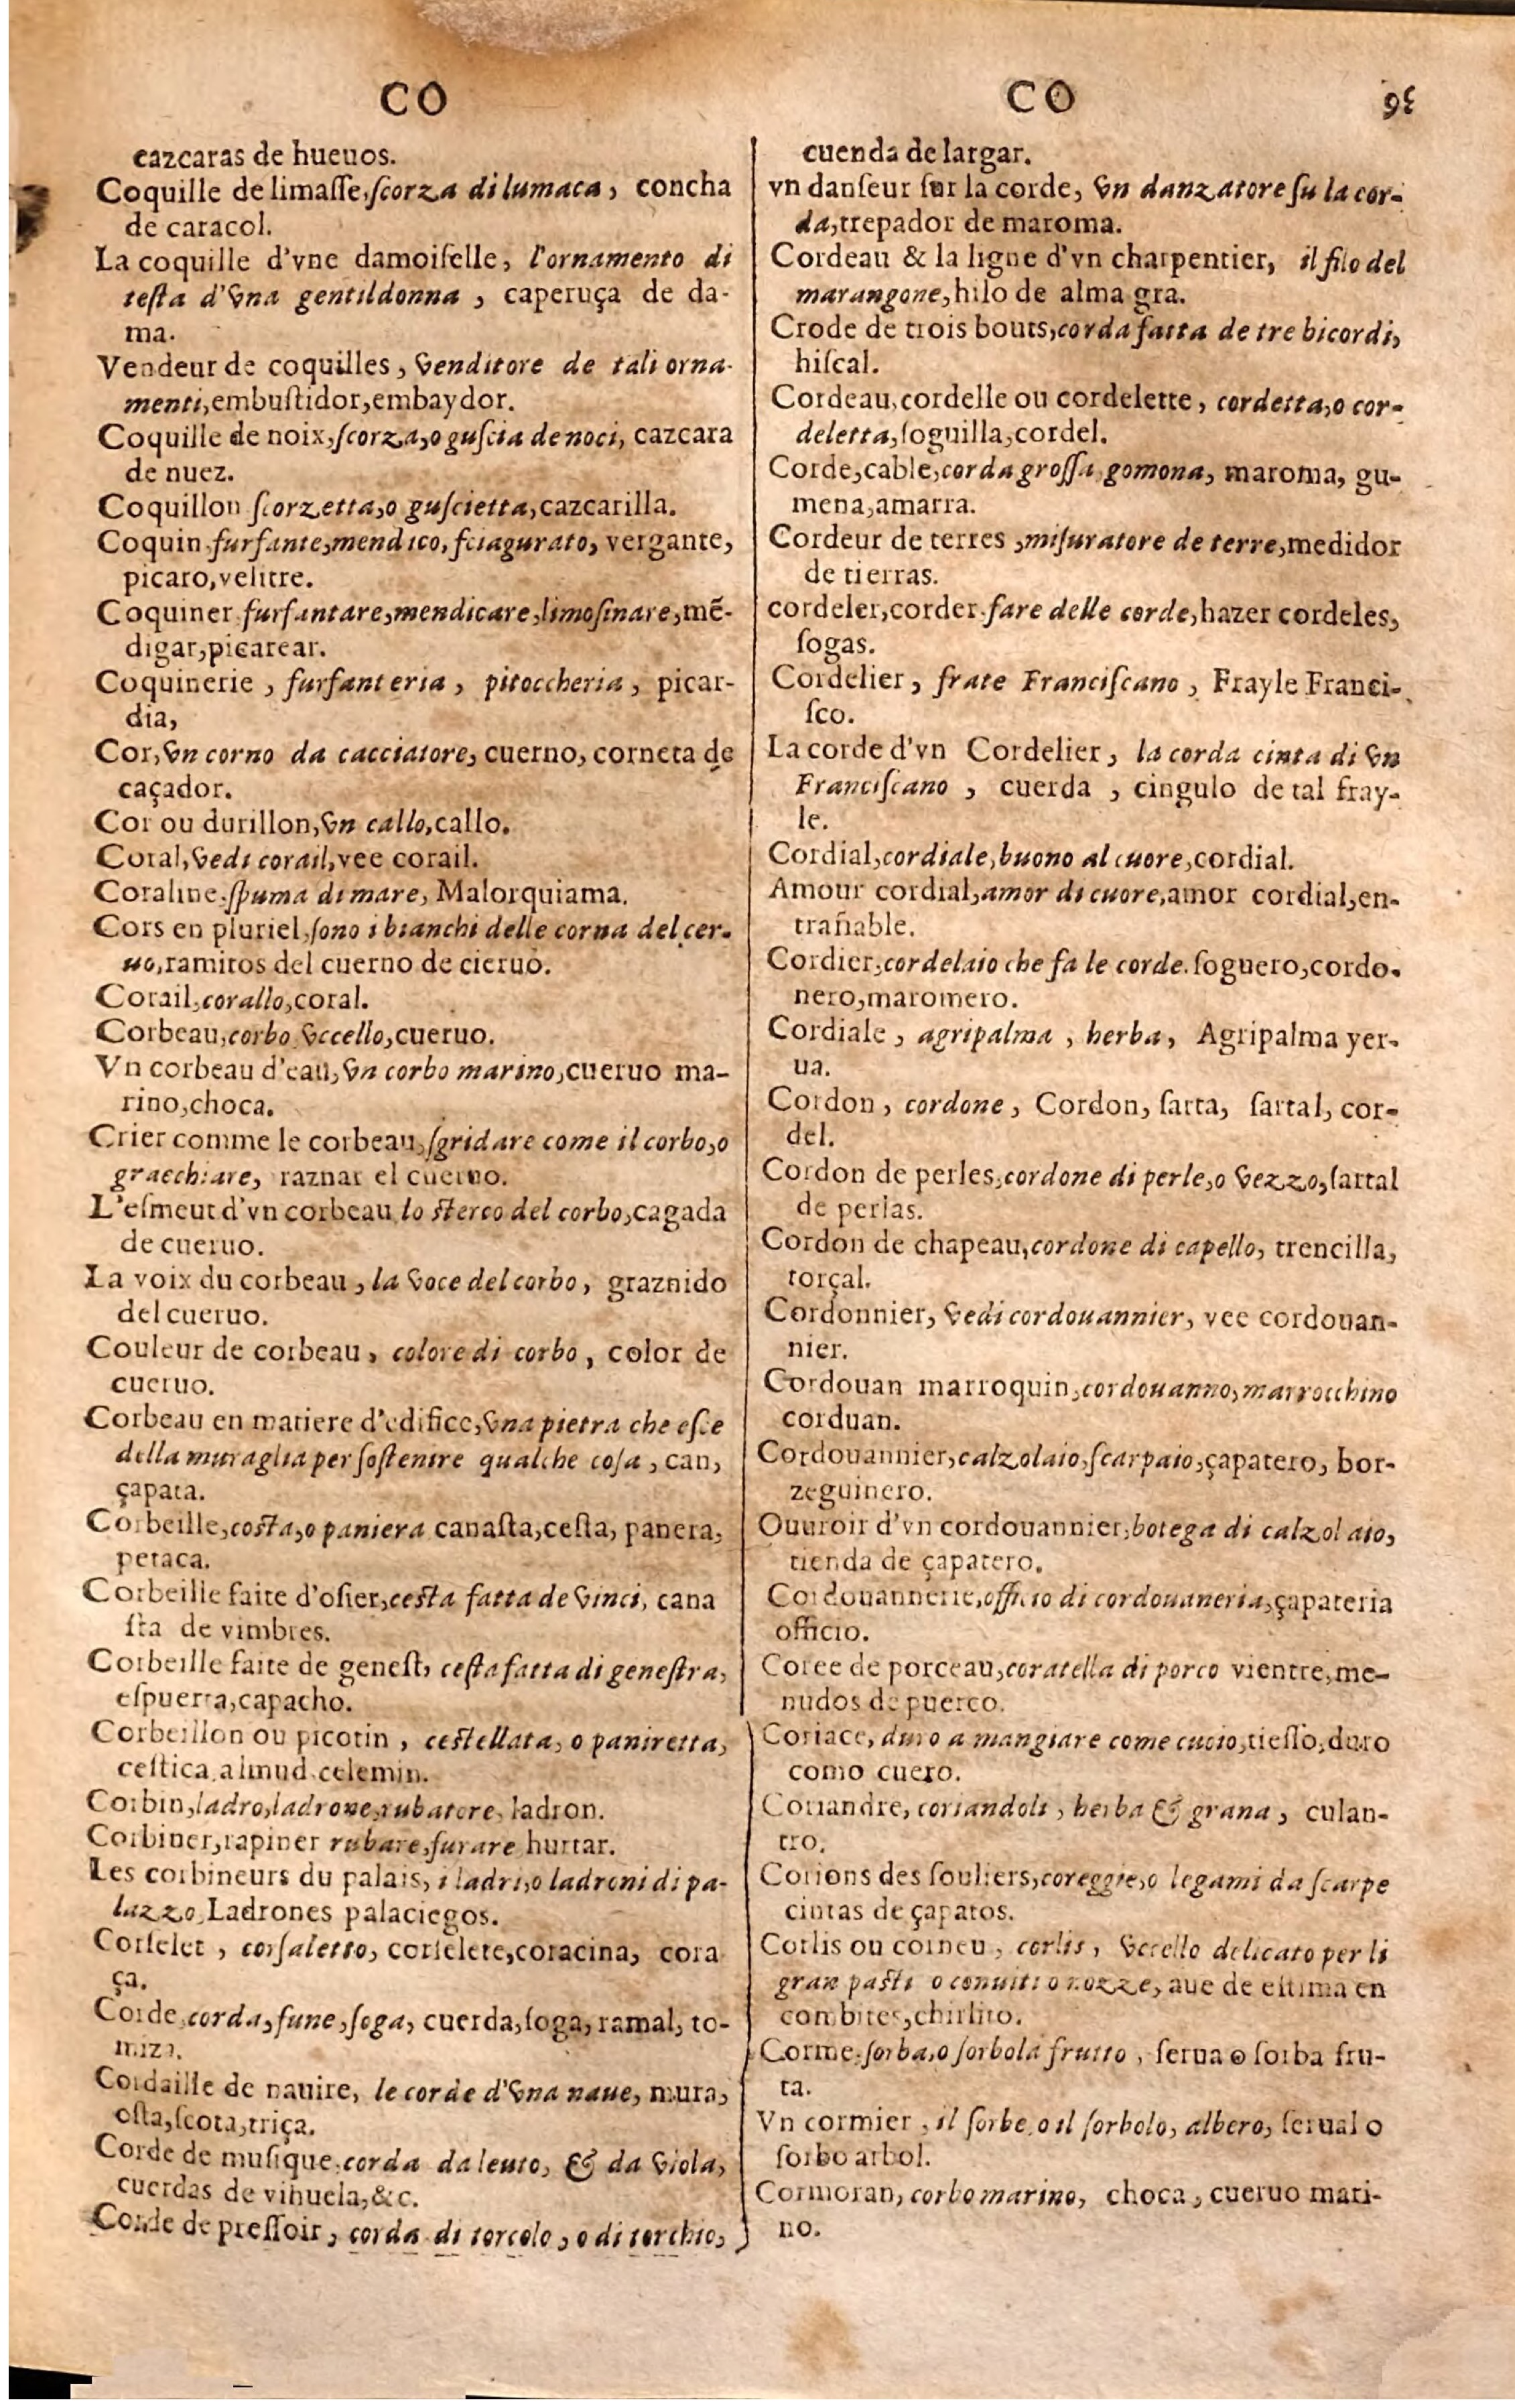 CO
cazcaras de hueuos.
Coquille de limaſſe, ſcorza di lumaca, concha
de caracol.
La coquille d'vne damoiſelle, l'ornamento di
teſta d'vna gentildonna, caperuça de da-
ma.
Vendeur de coquilles, venditore de tali orna-
menti, embuſtidor, embaydor.
Coquille de noix, ſcorza, o guſcia de noci, cazcara
de nuez.
Coquillon ſcorzetta, o guſcietta, cazcarilla.
Coquin, furfante, mendico, ſciagurato, vergante,
picaro, velitre.
Coquiner, furfantare, mendicare, limoſinare, mẽ-
digar, picarear.
Coquinerie, furfanteria, pitoccheria, picar-
dia,
Cor, vn corno da cacciatore, cuerno, corneta de
caçador.
Cor ou durillon, vn callo, callo.
Coral, vedi corail, vee corail.
Coraline, ſpuma di mare, Malorquiama.
Cors en pluriel, ſono i bianchi delle corna del cer-
uo, ramitos del cuerno de cieruo.
Corail, corallo, coral.
Corbeau, corbo vccello, cueruo.
Vn corbeau d'eau, vn corbo marino, cueruo ma-
rino, choca.
Crier comme le corbeau, ſgridare come il corbo, o
gracchiare, raznar el cueruo.
L'eſmeut d'vn corbeau lo ſterco del corbo, cagada
de cueruo.
La voix du corbeau, la voce del corbo, graznido
del cueruo.
Couleur de corbeau, colore di corbo, color de
cueruo.
Corbeau en matiere d'edifice, vna pietra che eſce
della muraglia per ſoſtenire qualche coſa, can,
çapata.
Corbeille, coſta, o paniera canaſta, ceſta, panera,
petaca.
Corbeille faite d'oſier, ceſta fatta de vinci, cana
ſta de vimbres.
Corbeille faite de geneſt, ceſta fatta di geneſtra,
eſpuerta, capacho.
Corbeillon ou picotin, ceſtellata, o paniretta,
ceſtica, almud, celemin.
Corbin, ladro, ladrone, rubatore, ladron.
Corbiner, rapiner rubare, furare hurtar.
Les corbineurs du palais, i ladri, o ladroni di pa-
lazzo, Ladrones palaciegos.
Corſelet, corſaletto, corſelete, coracina, cora
ça.
Corde, corda, fune, ſoga, cuerda, ſoga, ramal, to-
miza.
Cordaille de nauire, le corde d'vna naue, mura,
oſta, ſcota, triça.
Corde de muſique, corda da leuto, & da viola,
cuerdas de vihuela, &c.
Corde de preſſoir, corda di torcolo, o di torchio,
CO 95
cuenda de largar.
vn danſeur ſur la corde, vn danzatore ſu la cor-
da, trepador de maroma.
Cordeau & la ligne d'vn charpentier, il filo del
marangone, hilo de alma gra.
Crode de trois bouts, corda fatta de tre bicordi,
hiſcal.
Cordeau, cordelle ou cordelette, cordetta, o cor-
deletta, ſoguilla, cordel.
Corde, cable, corda groſſa gomona, maroma, gu-
mena, amarra.
Cordeur de terres, miſuratore de terre, medidor
de tierras.
cordeler, corder, fare delle corde, hazer cordeles,
ſogas.
Cordelier, frate Franciſcano, Frayle Franci-
ſco.
La corde d'vn Cordelier, la corda cinta di vn
Franciſcano, cuerda, cingulo de tal fray-
le.
Cordial, cordiale, buono al cuore, cordial.
Amour cordial, amor di cuore, amor cordial, en-
trañable.
Cordier, cordelaio che fa le corde. ſoguero, cordo-
nero, maromero.
Cordiale, agripalma, herba, Agripalma yer-
ua.
Cordon, cordone, Cordon, ſarta, ſartal, cor-
del.
Cordon de perles, cordone di perle, o vezzo, ſartal
de perlas.
Cordon de chapeau, cordone di capello, trencilla,
torçal.
Cordonnier, vedi cordouannier, vee cordouan-
nier.
Cordouan marroquin, cordouanno, marrocchino
corduan.
Cordouannier, calzolaio, ſcarpaio, çapatero, bor-
zeguinero.
Ouuroir d'vn cordouannier, botega di calzolaio,
tienda de çapatero.
Cordouannerie, officio di cordouaneria, çapateria
officio.
Coree de porceau, coratella di porco vientre, me-
nudos de puerco.
Coriace, duro a mangiare come cuoio, tieſſo, duro
como cuero.
Coriandre, coriandoli, herba & grana, culan-
tro.
Corions des ſouliers, coreggie, o legami da ſcarpe
cintas de çapatos.
Corlis ou corneu, corlis, vccello delicato per li
gran paſti o conuiti o nozze, aue de eſtima en
combites, chirlito.
Corme, ſorba, o ſorbola frutto, ſerua o ſorba fru-
ta.
Vn cormier, il ſorbe, o il ſorbolo, albero, ſerual o
ſorbo arbol.
Cormoran, corbo marino, choca, cueruo mari-
no.